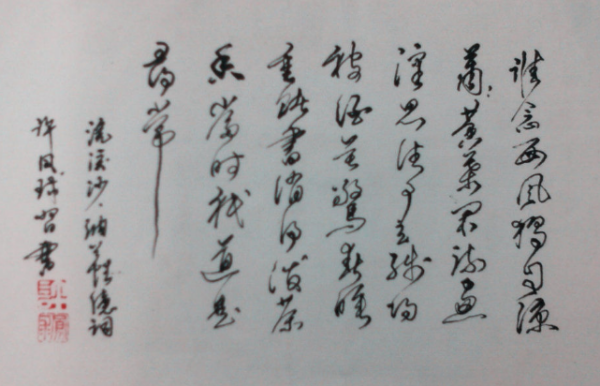 谁念西风独自凉
萧萧黄叶闭疏窗
沉思往事立残阳
被酒莫惊春睡
重赌书消得泼茶
香当时只道是
寻常
浣溪沙·纳兰性德词
许凤习书